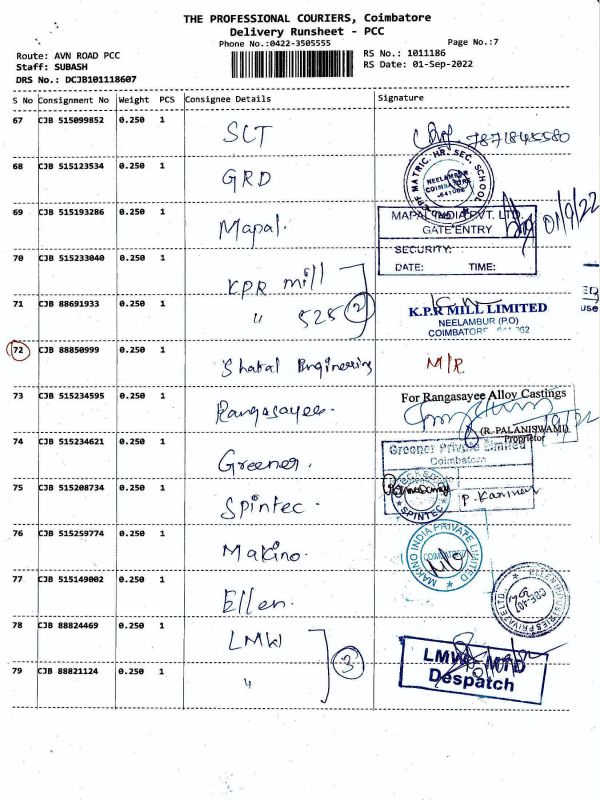 THE PROFESSIONAL COURIERS, Coimbatore
Delivery Runsheet - PCC
Phone No.:0422-3505555
Page No.:7
Route: AVN ROAD PCC
RS No.: 1011186
Staff: SUBASH
RS Date: 01-Sep-2022
DRS No.: DCJB101118607
S No Consignment No Weight PCS Consignee Details Signature
67 CJB 515099852 0.250 1 SCT
68 CJB 515123534 0.250 1 GRD
MATRIC. HR. SEC. SCHOOL
NEELAMBUR
COIMBATORE
-641062
69 CJB 515193286 0.250 1 Mapal.
MAPAL INDIA PVT. LTD.
GATE ENTRY
01/9/22
SECURITY:
DATE: TIME:
70 CJB 515233040 0.250 1 KPR mill
71 CJB 88691933 0.250 1 " 525 2
K.P.R MILL LIMITED
NEELAMBUR (P.O)
COIMBATORE
72 CJB 88850999 0.250 1 Engineering M/R
73 CJB 515234595 0.250 1 Rangasayee.
For Rangasayee Alloy Castings
(R. PALANISWAMI)
Proprietor
74 CJB 515234621 0.250 1 Greener.
Greener Private Limited
Coimbatore
75 CJB 515208734 0.250 1 Spintec.
SPINTEC
76 CJB 515259774 0.250 1 Makino.
MAKINO INDIA PRIVATE LIMITED
COIMBATORE
77 CJB 515149002 0.250 1 Ellen.
78 CJB 88824469 0.250 1 LMW
79 CJB 88821124 0.250 1 " 3
LMW - MTD
Despatch